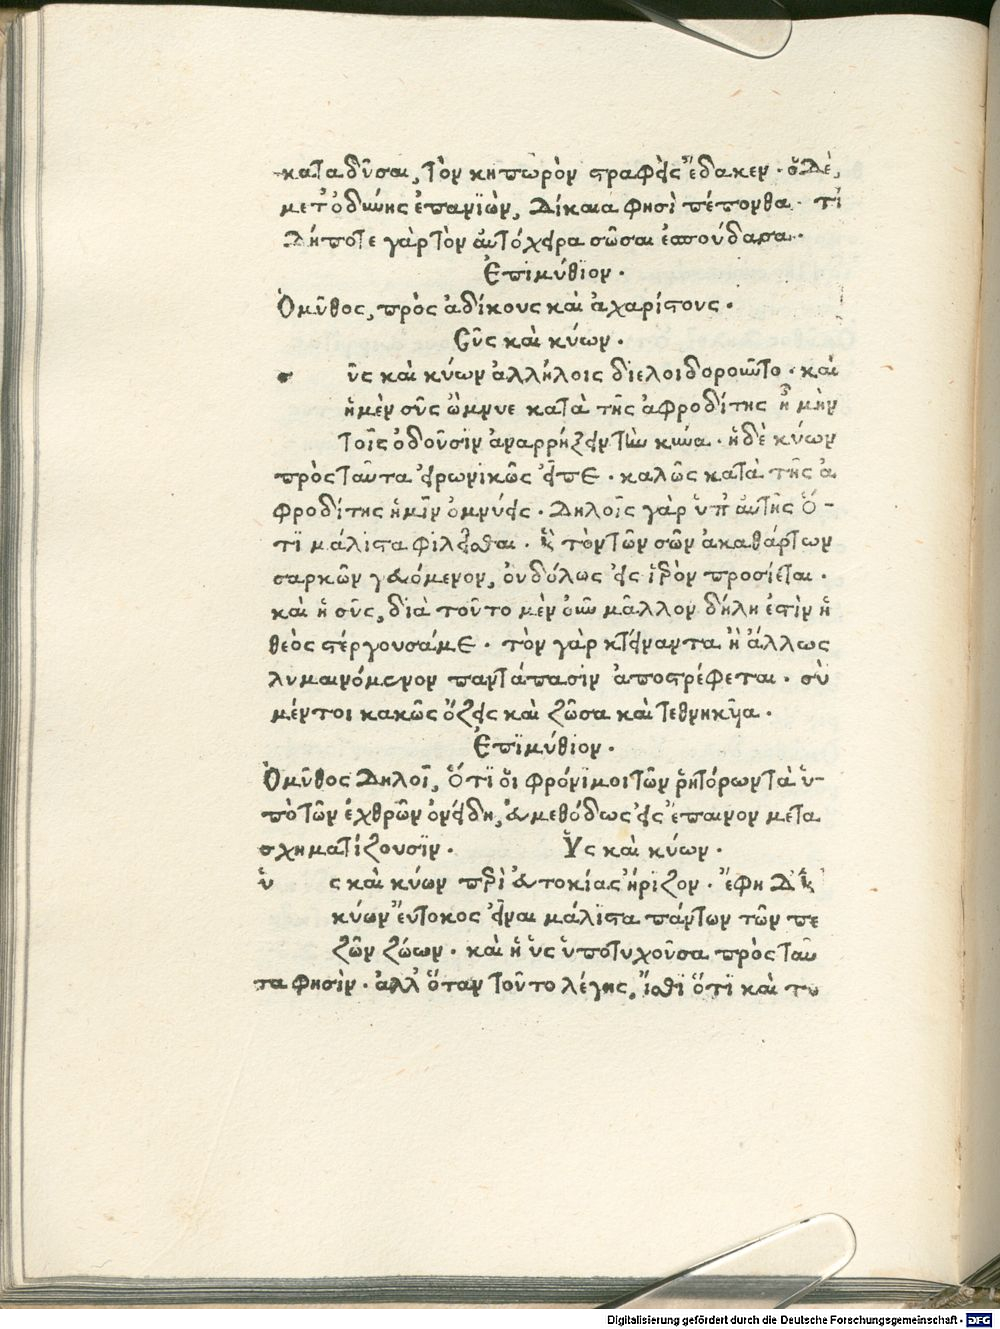 καταδῦσαι, τὸν κηπωρὸν στραφεὶς ἔδακεν · ὁ δὲ,
μετ' ὀδύνης ἐπανϊὼν, δίκαια φησὶ πέπονθα · τί
δήποτε γὰρ τὸν αὐτόχειρα σῶσαι ἐσπούδασα ·
Ἐπιμύθϊον ·
Ὁ μῦθος, πρὸς ἀδίκους καὶ ἀχαρίστους ·
Σῦς καὶ κύων ·
σ ῦς καὶ κύων ἀλλήλοις διελοιδοροῦντο · καὶ
ἡ μὲν σῦς ὤμνυε κατὰ τῆς ἀφροδίτης ἦ μὴν
τοῖς ὀδοῦσϊν ἀναρρήξειν τὴν κύνα · ἡ δὲ κύων
πρὸς ταῦτα εἰρωνικῶς εἶπε · καλῶς κατὰ τῆς ἀ
φροδίτης ἡμῖν ὀμνύεις · δηλοῖς γὰρ ὑπ' αὐτῆς ὅ-
τϊ μάλιστα φιλεῖσθαι · ἣ τὸν τῶν σῶν ἀκαθάρτων
σαρκῶν γευόμενον, οὐδόλως εἰς ἱερὸν προσίεται ·
καὶ ἡ σῦς, διὰ τοῦτο μὲν οὖν μᾶλλον δήλη ἐστὶν ἡ
θεὸς στέργουσά με · τὸν γὰρ κτείναντα ἢ ἄλλως
λυμαινόμενον παντάπασϊν ἀποστρέφεται · σὺ
μέντοι κακῶς ὄζεις καὶ ζῶσα καὶ τεθνηκῦια ·
Ἐπϊμύθϊον ·
Ὁ μῦθος δηλοῖ, ὅτϊ ὁι φρόνϊμοι τῶν ῥητόρων τὰ ὑ-
πὸ τῶν ἐχθρῶν ὀνείδη, εὐμεθόδως εἰς ἔπαινον μετα
σχηματίζουσϊν · Ὗς καὶ κύων ·
ὑ ς καὶ κύων περὶ εὐτοκίας ἤριζον · ἔφη δ' ἡ
κύων εὔτοκος εἶναι μάλιστα πάντων τῶν πε
ζῶν ζώων · καὶ ἡ ὑς ὑποτυχοῦσα πρὸς ταῦ
τα φησὶν · ἀλλ' ὅταν τοῦτο λέγης, ἴσθϊ ὅτϊ καὶ τυ
Digitalisierung gefördert durch die Deutsche Forschungsgemeinschaft - DFG